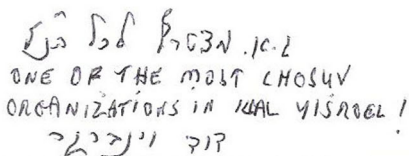 מצטרף לכל הנ"ל
ONE OF THE MOST CHOSUV
ORGANIZATIONS IN KLAL YISROEL!
דוד